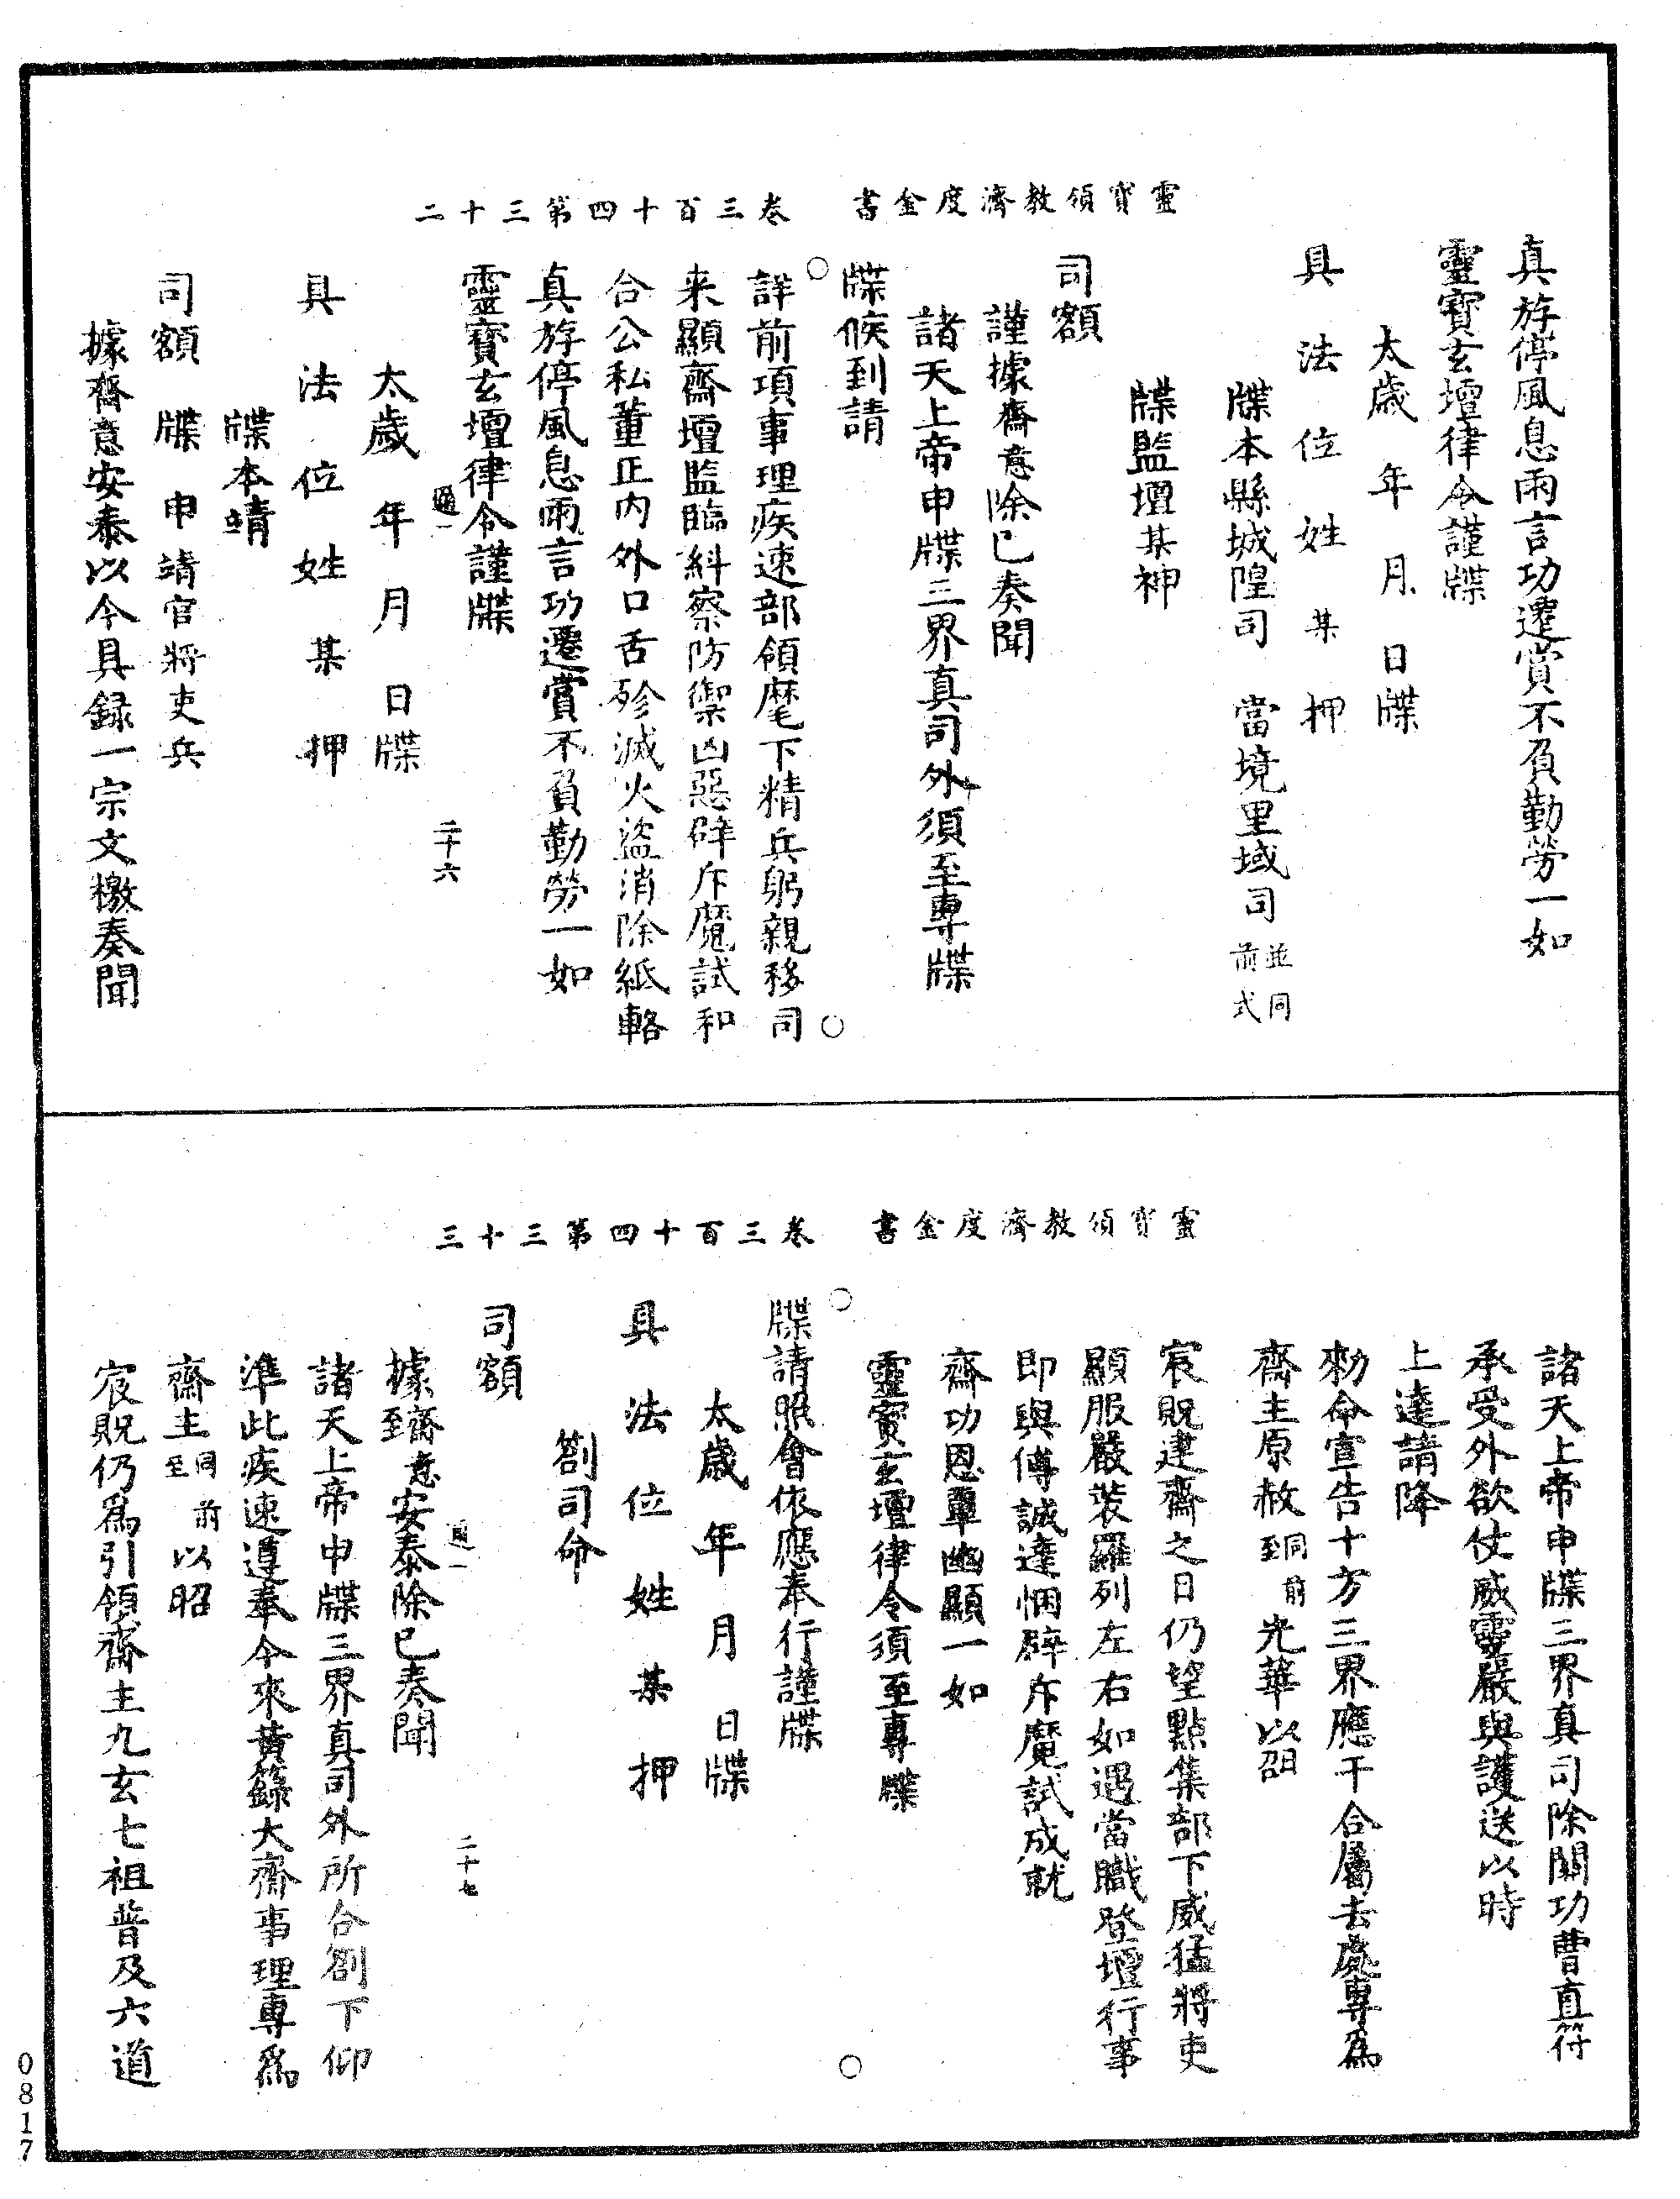 靈寶領教濟度金書　卷三百十四第三十二
真斿停風息雨言功遷賞不負勤勞一如
靈寶玄壇律令謹牒
太歲　年　月　日牒
具　法　位　姓　某　押
牒本縣城隍司　當境里域司並同前式
牒監壇某神
司額
謹據齋意除已奏聞
諸天上帝申牒三界真司外須至專牒
牒候到請
詳前項事理疾速部領麾下精兵躬親移司
来顯齋壇監臨糾察防禦凶惡辟斥魔試和
合公私董正内外口舌殄滅火盜消除紙輅
真斿停風息雨言功遷賞不負勤勞一如
靈寶玄壇律令謹牒
通一　二十六
太歲　年　月　日牒
具　法　位　姓　某　押
牒本靖
司額　牒　申　靖官將吏兵
據齋意安泰以今具録一宗文檄奏聞
靈寶領教濟度金書　卷三百十四第三十三
諸天上帝申牒三界真司除關功曹直符
承受外欲仗威靈嚴與護送以時
上達請降
勑命宣告十方三界應干合屬去處專爲
齋主原赦至同前光華以昭
宸貺建齋之日仍望點集部下威猛將吏
顯服嚴裝羅列左右如遇當職登壇行事
即與傳誠達悃辟斥魔試成就
齋功恩覃幽顯一如
靈寶玄壇律令須至專牒
牒請照會依應奉行謹牒
太歲　年　月　日牒
具　法　位　姓　某　押
劄司命
司額
通一　二十七
據至齋意安泰除已奏聞
諸天上帝申牒三界真司外所合劄下仰
準此疾速遵奉今來黃籙大齋事理專爲
齋主至同前以昭
宸貺仍爲引領齋主九玄七祖普及六道
0817